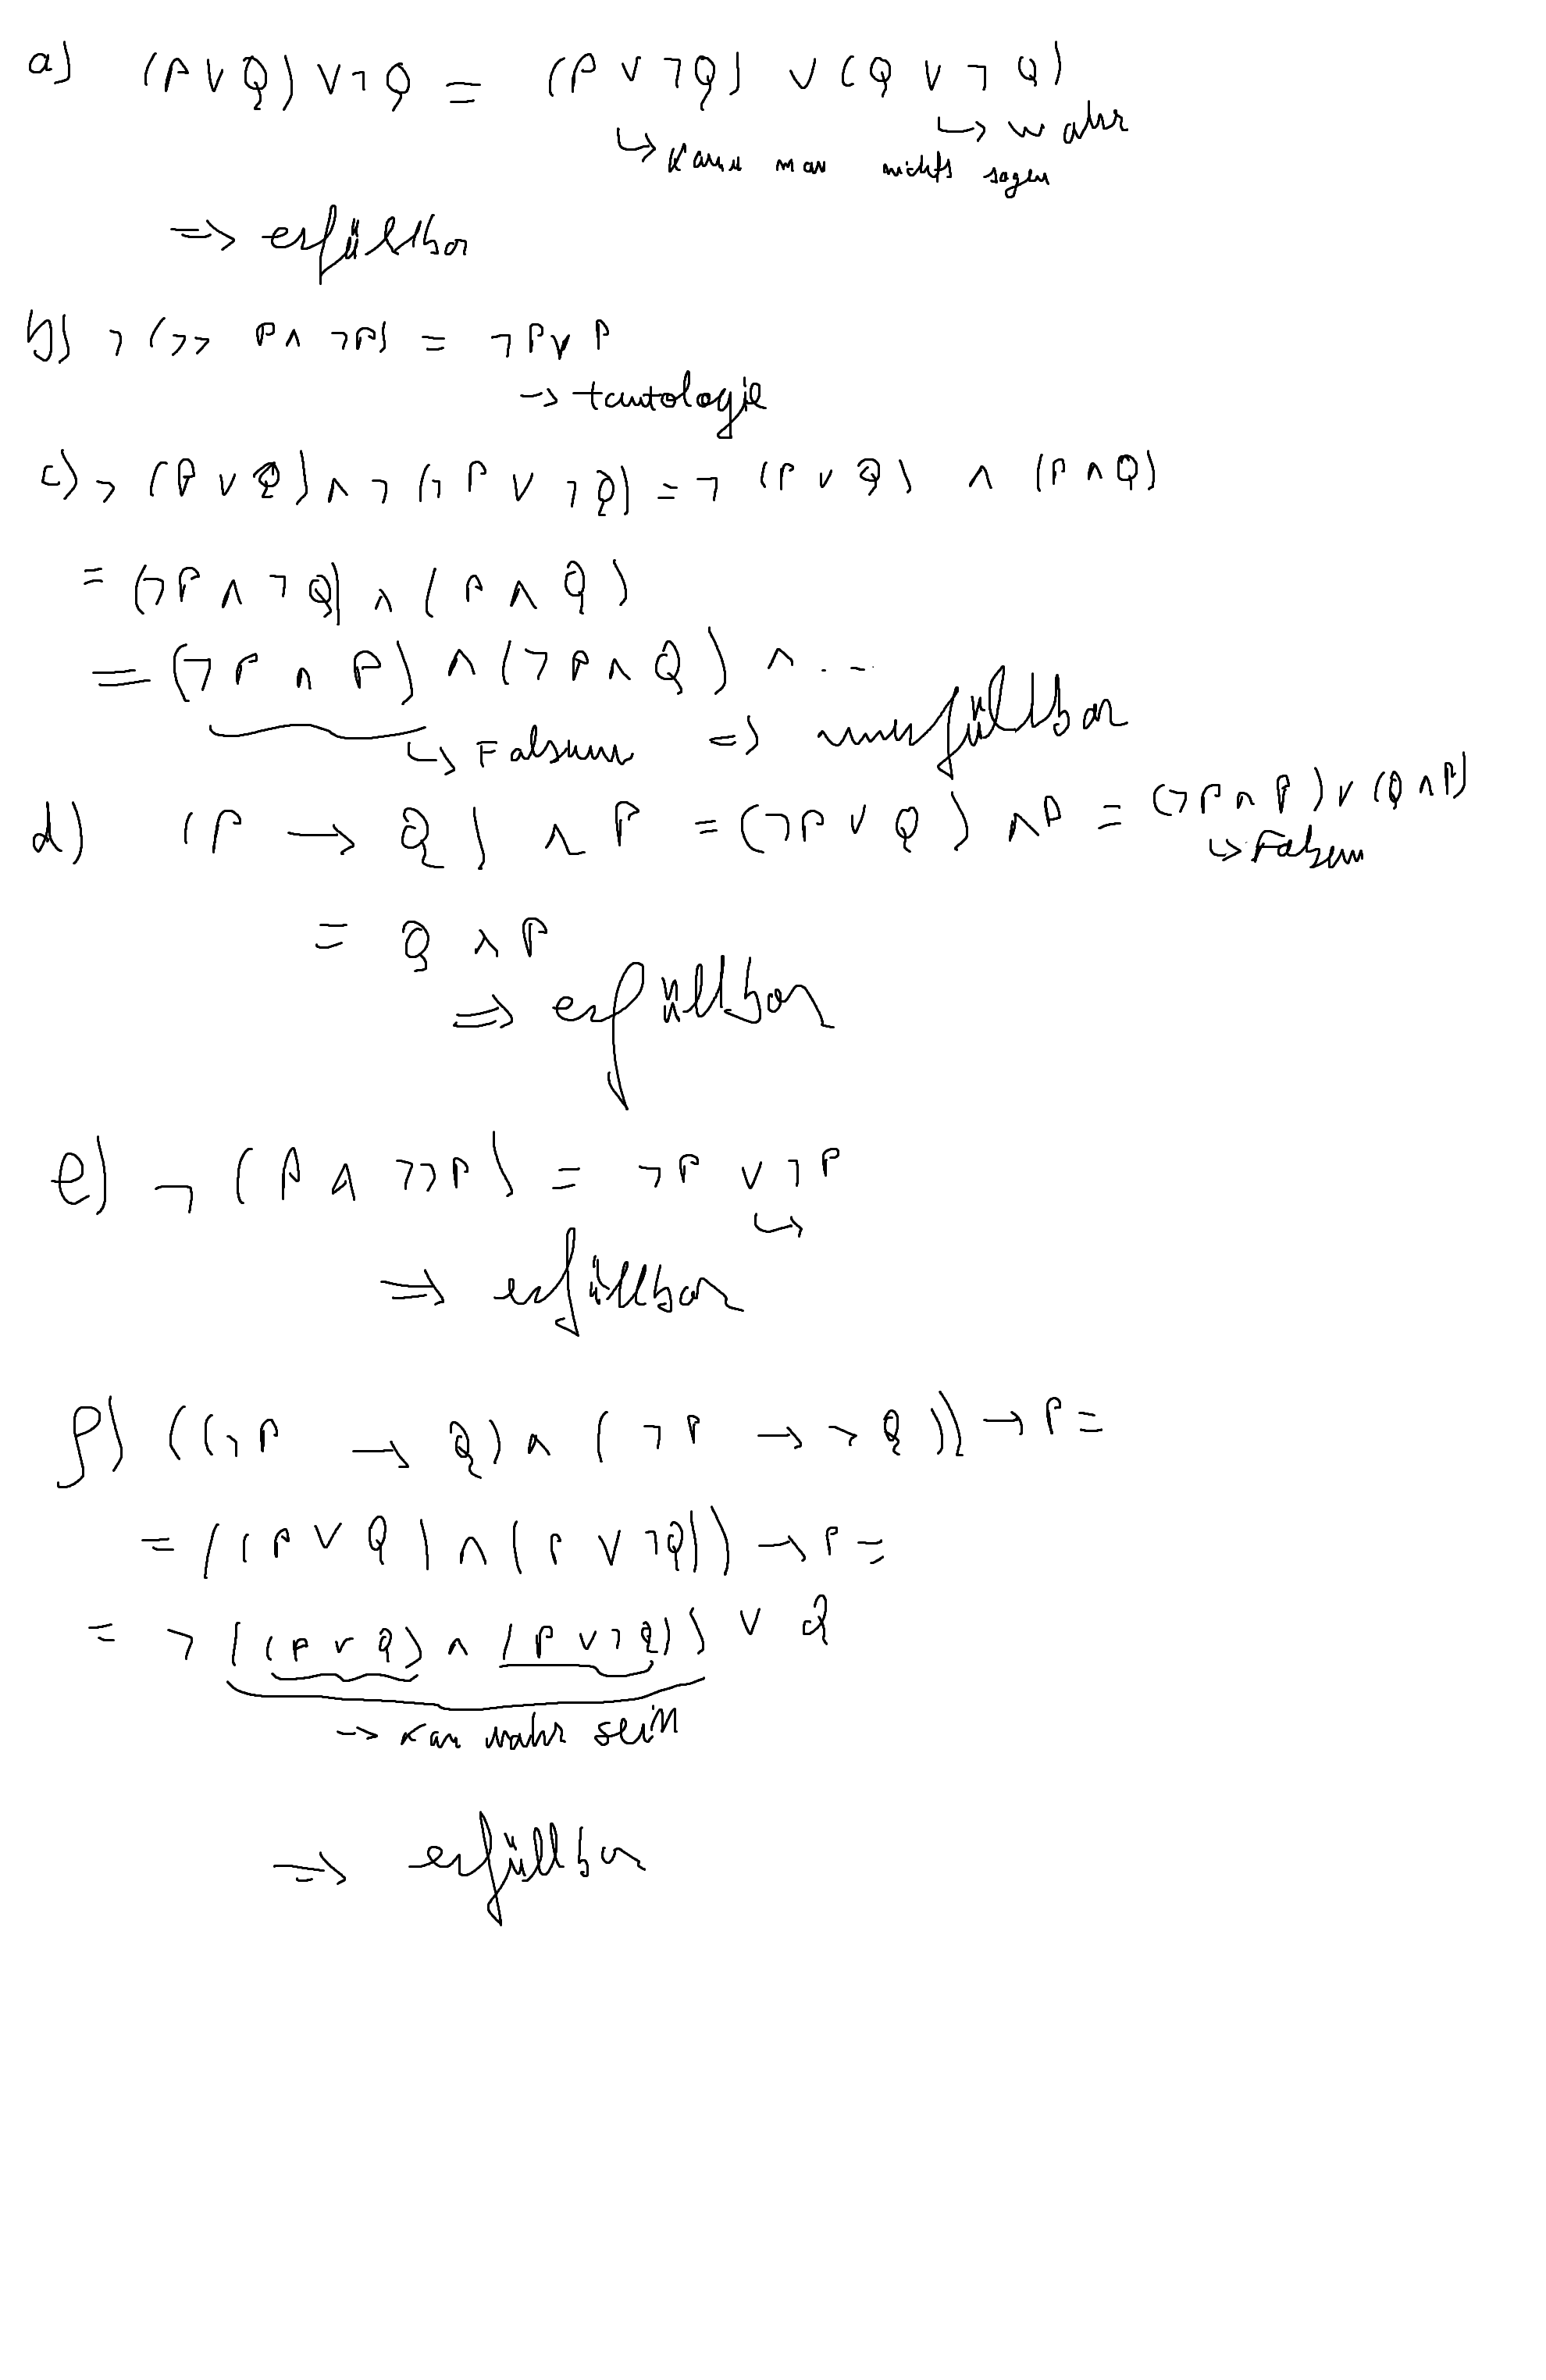 a) (P ∨ Q) ∨ ¬Q = (P ∨ ¬Q) ∨ (Q ∨ ¬Q)
↳ wahr
↳ kann man nichts sagen
=> erfüllbar
b) ¬(¬¬ P ∧ ¬P) = ¬P ∨ P
-> tautologie
c) ¬(P ∨ Q) ∧ ¬(¬P ∨ ¬Q) = ¬(P ∨ Q) ∧ (P ∧ Q)
= (¬P ∧ ¬Q) ∧ (P ∧ Q)
= (¬P ∧ P) ∧ (¬P ∧ Q) ∧ ...
↳ Falsum => unerfüllbar
d) (P → Q) ∧ P = (¬P ∨ Q) ∧ P = (¬P ∧ P) ∨ (Q ∧ P)
↳ Falsum
= Q ∧ P
=> erfüllbar
e) ¬(P ∧ ¬¬P) = ¬P ∨ ¬P
↳
=> erfüllbar
f) ((¬P → Q) ∧ (¬P → ¬Q)) → P =
= ((P ∨ Q) ∧ (P ∨ ¬Q)) → P =
= ¬((P ∨ Q) ∧ (P ∨ ¬Q)) ∨ Q
-> kan wahr sein
=> erfüllbar